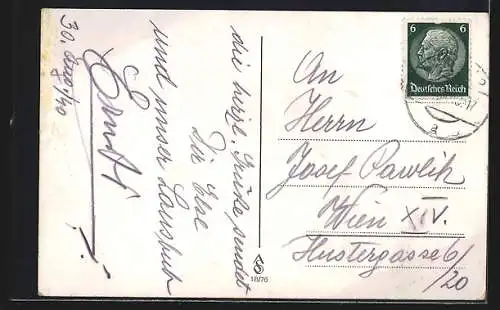 die herzl. Grüße sendet
Dir Else
und unser Lausbub
Ernstl
30. Aug. 1940
6 6
Deutsches Reich
An
Herrn
Josef Pawlik
Wien XIV.
Hustergasse 6/20
18/76